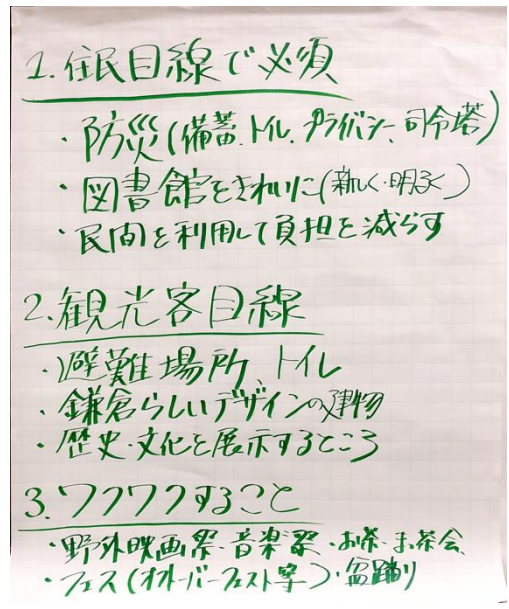 1.住民目線で必須
・防災(備蓄、トイレ、プライバシー、司令塔)
・図書館をきれいに(新しく・明るく)
・民間を利用して負担を減らす
2.観光客目線
・避難場所、トイレ
・鎌倉らしいデザインの建物
・歴史・文化を展示するところ
3.ワクワクすること
・野外映画祭・音楽祭・お茶・お茶会
・フェス(オクトーバーフェスト等)・盆踊り